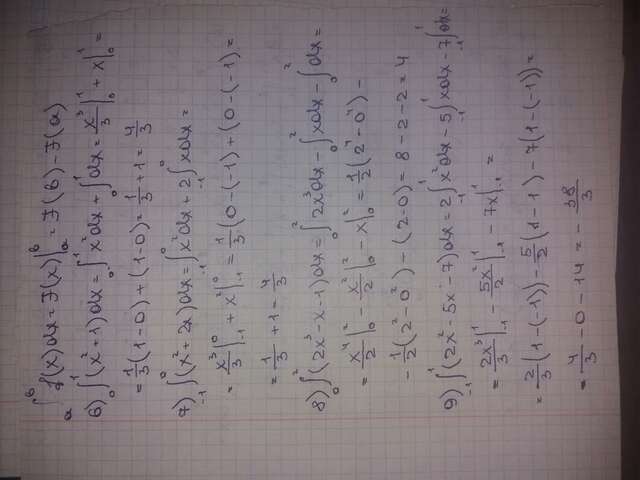 ∫ₐᵇ f(x)dx = F(x)|ₐᵇ = F(b) - F(a)
6) ∫₀¹ (x² + 1)dx = ∫₀¹ x²dx + ∫₀¹ dx = x³/3 |₀¹ + x|₀¹ =
= 1/3 (1 - 0) + (1 - 0) = 1/3 + 1 = 4/3
7) ∫₋₁⁰ (x² + 2x)dx = ∫₋₁⁰ x²dx + 2∫₋₁⁰ xdx =
= x³/3 |₋₁⁰ + x²|₋₁⁰ = 1/3 (0 - (-1) + (0 - (-1) =
= 1/3 + 1 = 4/3
8) ∫₀² (2x³ - x - 1)dx = ∫₀² 2x³dx - ∫₀² xdx - ∫₀² dx =
= x⁴/2 |₀² - x²/2 |₀² - x|₀² = 1/2 (2⁴ - 0⁴) -
- 1/2 (2² - 0²) - (2 - 0) = 8 - 2 - 2 = 4
9) ∫₋₁¹ (2x² - 5x - 7)dx = 2∫₋₁¹ x²dx - 5∫₋₁¹ xdx - 7∫₋₁¹ dx =
= 2x³/3 |₋₁¹ - 5x²/2 |₋₁¹ - 7x|₋₁¹ =
= 2/3 (1 - (-1)) - 5/2 (1 - 1) - 7(1 - (-1)) =
= 4/3 - 0 - 14 = - 38/3